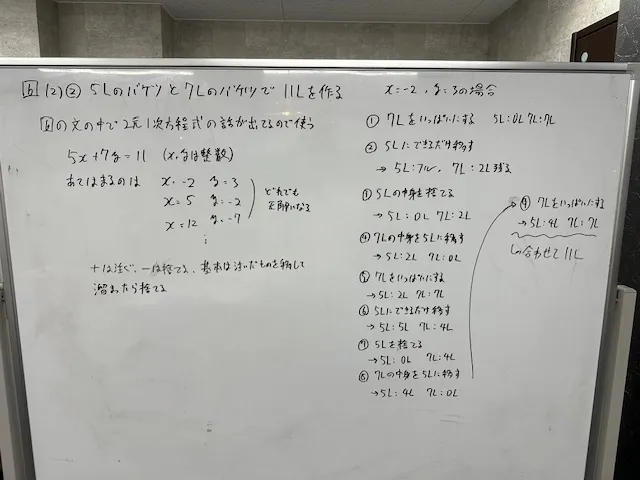 6 (2)② 5Lのバケツと7Lのバケツで11Lを作る
の文の中で2元1次方程式の話が出てるので使う
5x+7y=11 (x,yは整数)
あてはまるのは x=-2 y=3
x=5 y=-2
x=12 y=-7
⋮
どれでも
正解になる
+は注ぐ、-は捨てる、基本は注いだものを移して
溜まったら捨てる
x=-2, y=3の場合
① 7Lをいっぱいにする 5L:0L 7L:7L
② 5Lにできるだけ移す
→ 5L:フル, 7L:2L残る
③ 5Lの中身を捨てる
→ 5L:0L 7L:2L
④ 7Lの中身を5Lに移す
→ 5L:2L 7L:0L
⑤ 7Lをいっぱいにする
→ 5L:2L 7L:7L
⑥ 5Lにできるだけ移す
→ 5L:5L 7L:4L
⑦ 5Lを捨てる
→ 5L:0L 7L:4L
⑧ 7Lの中身を5Lに移す
→ 5L:4L 7L:0L
⑨ 7Lをいっぱいにする
→ 5L:4L 7L:7L
合わせて11L